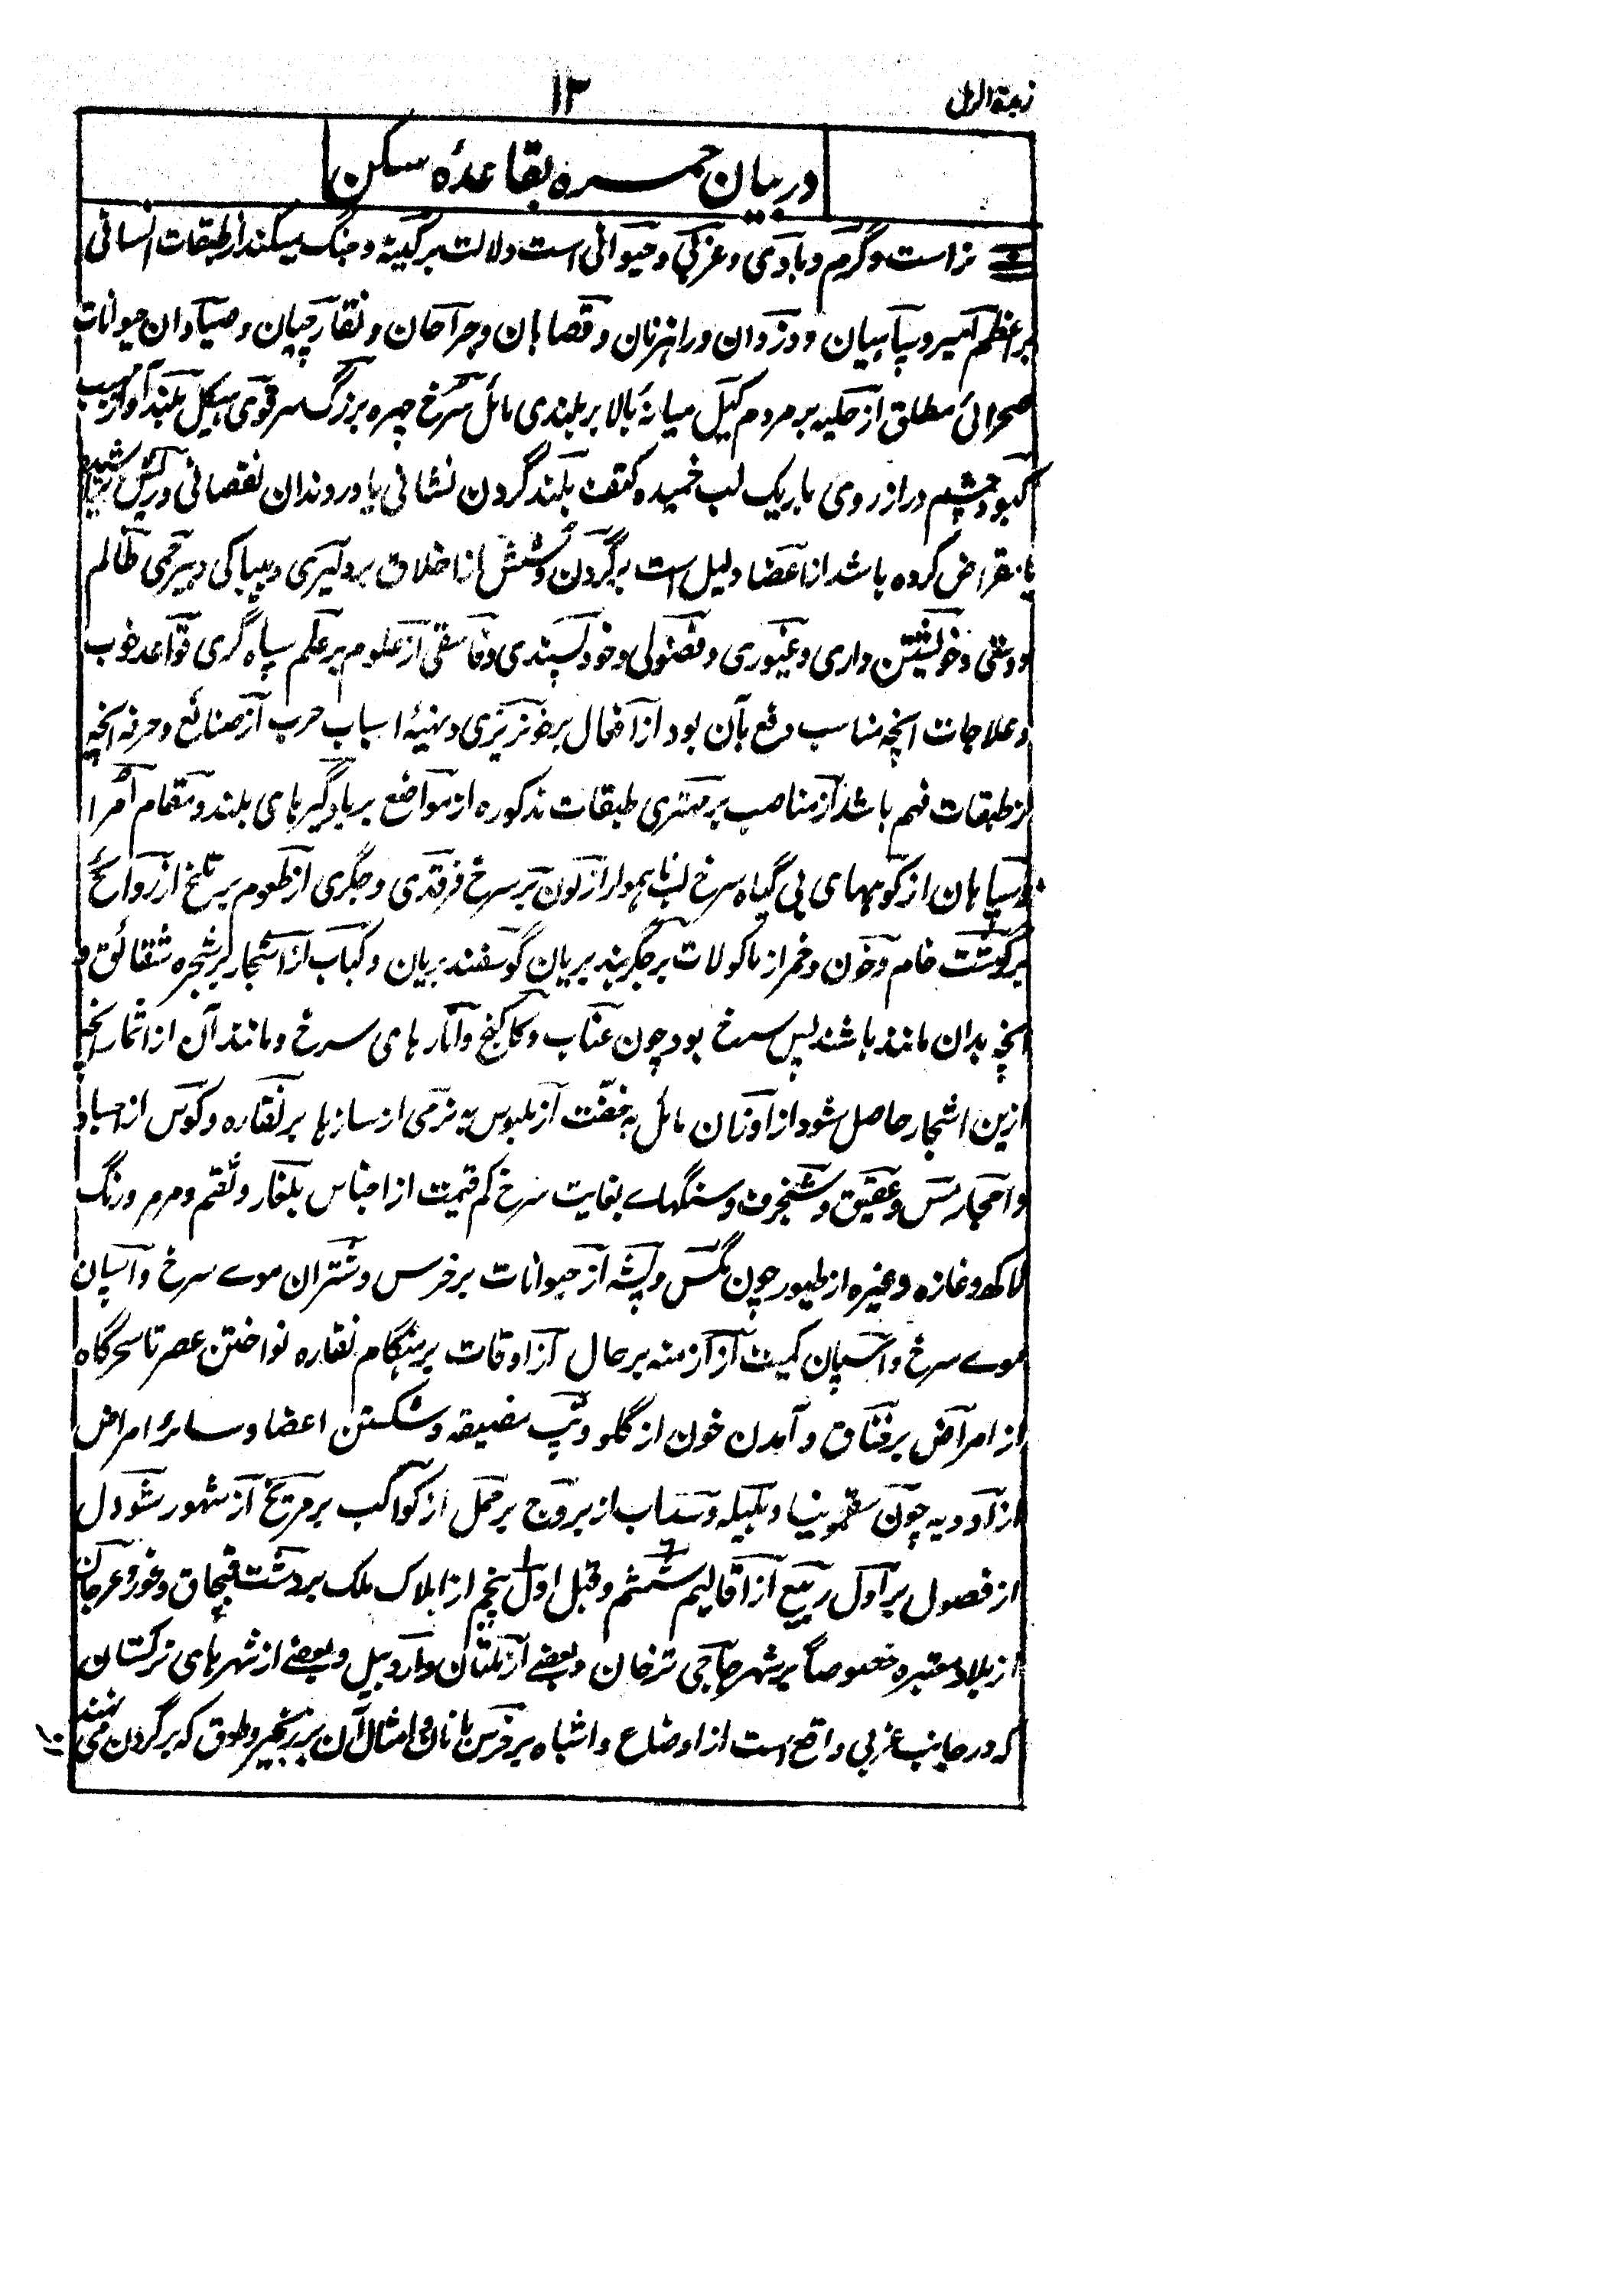 زبدة الرمل
۱۳
در بیان حمره بقاعدهٔ سکن
نر است و گرم و بادی و غربی و حیوانی است دلالت بر کینه و جنگ میکند از طبقات انسانی
بر اعظم امیر و سپاهیان و دزدان و راهزنان و قصابان و جراحان و نقارچیان و صیادان حیوانات
صحرائی مطلق از حلیه بر مردم کیل میانهٔ بالا بر بلندی مائل سرخ چهره بزرگ سر قوی هیکل بلند آواز
کبود چشم دراز روی باریک لب خمیده کتف بلند گردن نشانی یا در دندان نقصانی و ریش
یا مقراض کرده باشد از اعضا دلیل است بر گردن و شش از اخلاق بر دلیری و بیباکی و بیرحمی ظالم
و خویشتن داری و غیوری و فضولی و خود پسندی و فاسقی از علوم بر علم سپاه گری قواعد ضرب
و علاجات انچه مناسب دفع بآن بود از افعال بر خونریزی و تهیهٔ اسباب حرب از صنائع و حرفه انچه
از طبقات فهم باشد از مناصب بر مهتری طبقات مذکوره از مواضع بر بادگیرهای بلند و مقام امرا
و سپاهان از کوههای بی گیاه سرخ لب ناهموار از لون بر سرخ فرقدی و جگری از طعوم بر تلخ از روائح
بر گوشت خام و خون و خمر از ماکولات بر جگربند بریان گوسفند بریان و کباب از اشجار بر شجره شقائق و
انچه بدان مانند باشند پس سرخ بود چون عناب و کاکنج و انارهای سرخ و مانند آن از اثمار انچه
ازین اشجار حاصل شود از اوزان مائل به خفت از ملبوس به نرمی از سازها بر نقاره و کوس از اجساد
و احجار مس و عقیق و شنجرف و سنگهاے بغایت سرخ کم قیمت از اجناس بلغار و لقم و مرمر و رنگ
لاکھ و غازه و غیره از طیور چون مگس و پشه از حیوانات بر خرس و شتران موے سرخ و اسپان
موے سرخ و اسپان کمیت از ازمنه بر حال از اوقات بر هنگام نقاره نواختن عصر تا سحرگاه
از امراض بر خناق و آمدن خون از گلو و تپ مضیقه و شکستن اعضا و سائر امراض
از ادویه چون سقمونیا و بلیله و سداب از بروج بر حمل از کواکب بر مریخ از شهور شودل
از فصول بر اول ربیع از اقالیم ششم و قبل اول پنجم از املاک ملک بر دشت قبچاق و غور و
از بلاد معتبره خصوصاً بر شهر حاجی ترخان و بعضے از ملتان و اردبیل و بعضے از شهرهای ترکستان
که در جانب غربی واقع است از اوضاع و اشباه بر قرص نان و امثال آن بر زنجیر و طوق که بر گردن می نهند